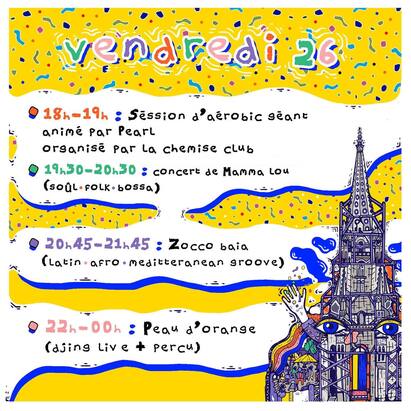 vendredi 26
18h-19h : Séssion d'aérobic géant
animé par Pearl
organisé par La chemise club
19h30-20h30 : concert de Mamma Lou
(soûl•folk•bossa)
20h45-21h45 : Zocco baia
(Latin•afro•mediterranean groove)
22h-00h : Peau d'orange
(djing live + percu)